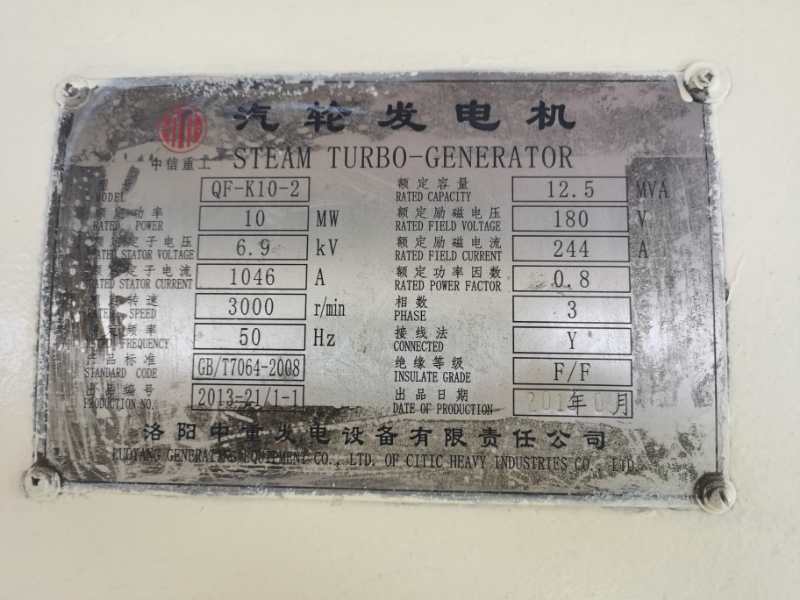 汽轮发电机
中信重工 STEAM TURBO-GENERATOR
MODEL QF-K10-2
额定容量 RATED CAPACITY 12.5 MVA
额定功率 RATED POWER 10 MW
额定励磁电压 RATED FIELD VOLTAGE 180 V
额定定子电压 RATED STATOR VOLTAGE 6.9 kV
额定励磁电流 RATED FIELD CURRENT 244 A
额定定子电流 RATED STATOR CURRENT 1046 A
额定功率因数 RATED POWER FACTOR 0.8
额定转速 RATED SPEED 3000 r/min
相数 PHASE 3
额定频率 RATED FREQUENCY 50 Hz
接线法 CONNECTED Y
产品标准 STANDARD CODE GB/T7064-2008
绝缘等级 INSULATE GRADE F/F
出品编号 PRODUCTION NO. 2013-21/1-1
出品日期 DATE OF PRODUCTION 年 月
洛阳中重发电设备有限责任公司
LUOYANG GENERATING EQUIPMENT CO., LTD. OF CITIC HEAVY INDUSTRIES CO., LTD.